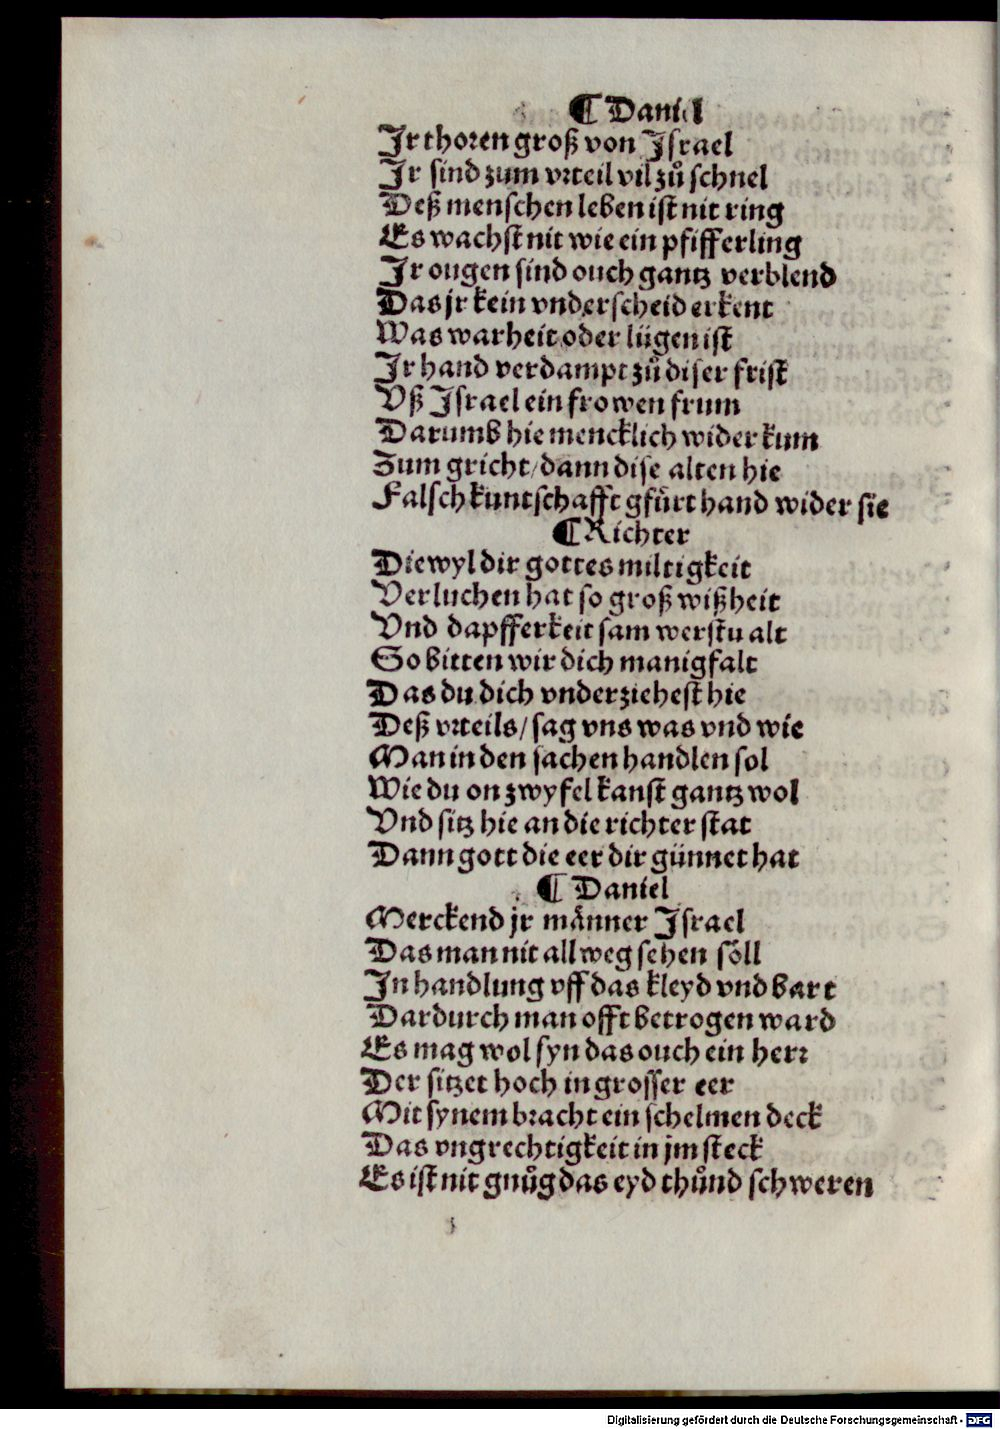 ¶ Daniel
Jr thoren groß von Jsrael
Jr sind zum vrteil vil zů schnel
Deß menschen leben ist nit ring
Es wachst nit wie ein pfifferling
Jr ougen sind ouch gantz verblend
Das jr kein vnderscheid erkent
Was warheit oder lügen ist
Jr hand verdampt zů diser frist
Vß Jsrael ein frowen frum
Darumb hie mencklich wider kum
Zum gricht/ dann dise alten hie
Falsch kuntschafft gfürt hand wider sie
¶ Richter
Diewyl dir gottes miltigkeit
Verluchen hat so groß wißheit
Vnd dapfferkeit sam werstu alt
So bitten wir dich manigfalt
Das du dich vnderziehest hie
Deß vrteils/ sag vns was vnd wie
Man in den sachen handlen sol
Wie du on zwyfel kanst gantz wol
Vnd sitz hie an die richter stat
Dann gott die eer dir günnet hat
¶ Daniel
Merckend jr mǎnner Jsrael
Das man nit allweg sehen söll
Jn handlung vff das kleyd vnd bart
Dardurch man offt betrogen ward
Es mag wol syn das ouch ein herr
Der sitzet hoch in grosser eer
Mit synem bracht ein schelmen deck
Das vngrechtigkeit in jm steck
Es ist nit gnůg das eyd thůnd schweren
Digitalisierung gefördert durch die Deutsche Forschungsgemeinschaft - DFG